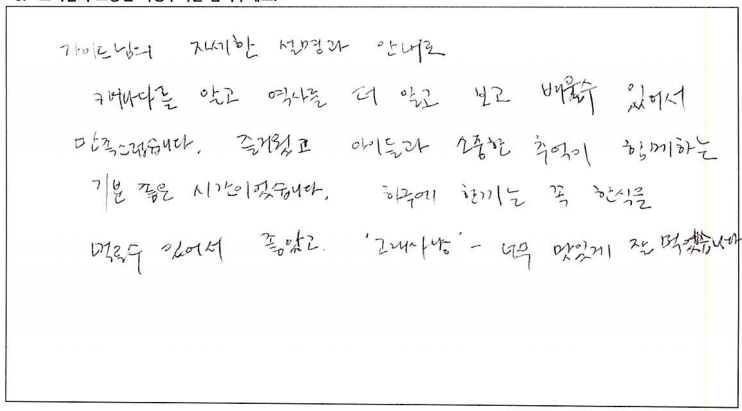 가이드님의 자세한 설명과 안내로
캐나다를 알고 역사를 더 알고 보고 배울수 있어서
만족스럽습니다. 즐거웠고 아이들과 소중한 추억이 함께하는
기분 좋은 시간이었습니다. 하루에 한끼는 꼭 한식을
먹을수 있어서 좋았고. '고래사냥' - 너무 맛있게 잘 먹었습니다